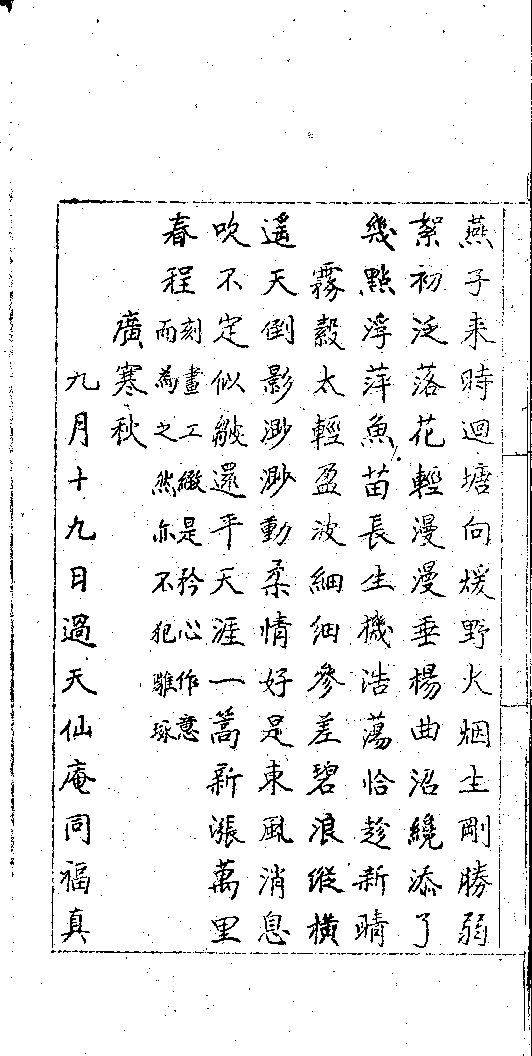 燕子来時迴塘向煖野火烟生剛勝弱
絮初泛落花輕漫漫垂楊曲沼纔添了
幾點浮萍魚苗長生機浩蕩恰趁新晴
霧縠太輕盈波細細參差碧浪縱橫
遙天倒影渺渺動柔情好是東風消息
吹不定似皺還平天涯一篙新漲萬里
春程
刻畫工緻是矜心作意
而為之然亦不犯雕琢
廣寒秋
九月十九日過天仙庵同福真